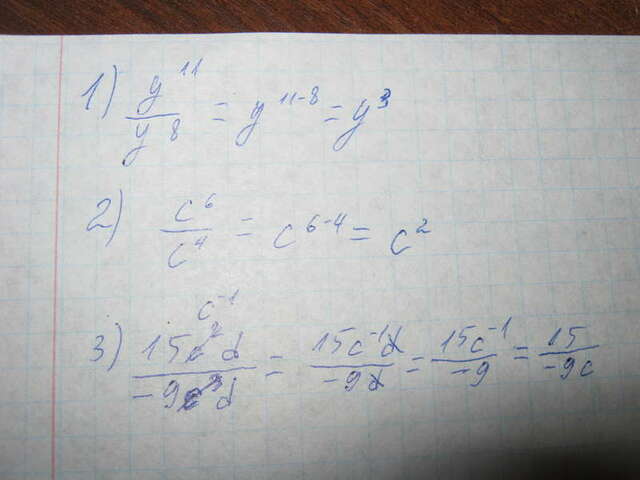 1) y¹¹/y⁸ = y¹¹⁻⁸ = y³
2) c⁶/c⁴ = c⁶⁻⁴ = c²
c⁻¹
3) 15c²d/-9c³d = 15c⁻¹d/-9d = 15c⁻¹/-9 = 15/-9c